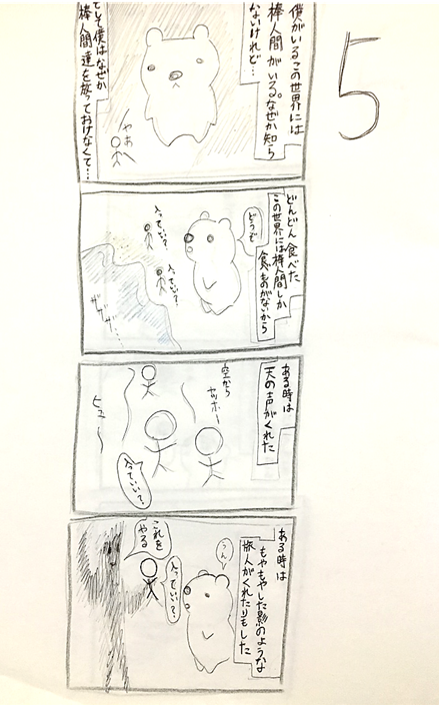 5
僕がいるこの世界には
棒人間がいる。なぜか知ら
ないけれど…
やあ
そして僕はなぜか
棒人間達を放っておけなくて…
どんどん食べた
この世界には棒人間しか
食べものがないから
どうぞ
入っていい?
入っていい?
ザザザ…
ある時は
天の声がくれた
空から
ヤッホー
ヒュー
入っていい?
ある時は
もやもやした影のような
旅人がくれたりもした
うん
入っていい?
これを
やる